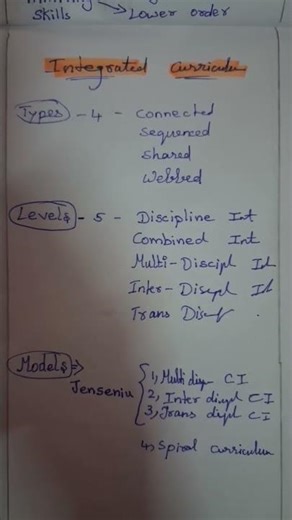 Skills → Lower order
Integrated Curriculum
Types - 4 - Connected
Sequenced
Shared
Webbed
Levels - 5 - Discipline Int
Combined Int
Multi-Discipl Int
Inter-Discpl Int
Trans
Models ⇒
Jenseniu
1, Multi disp CI
2, Inter displ CI
3, Trans displ CI
4, Spiral curriculum